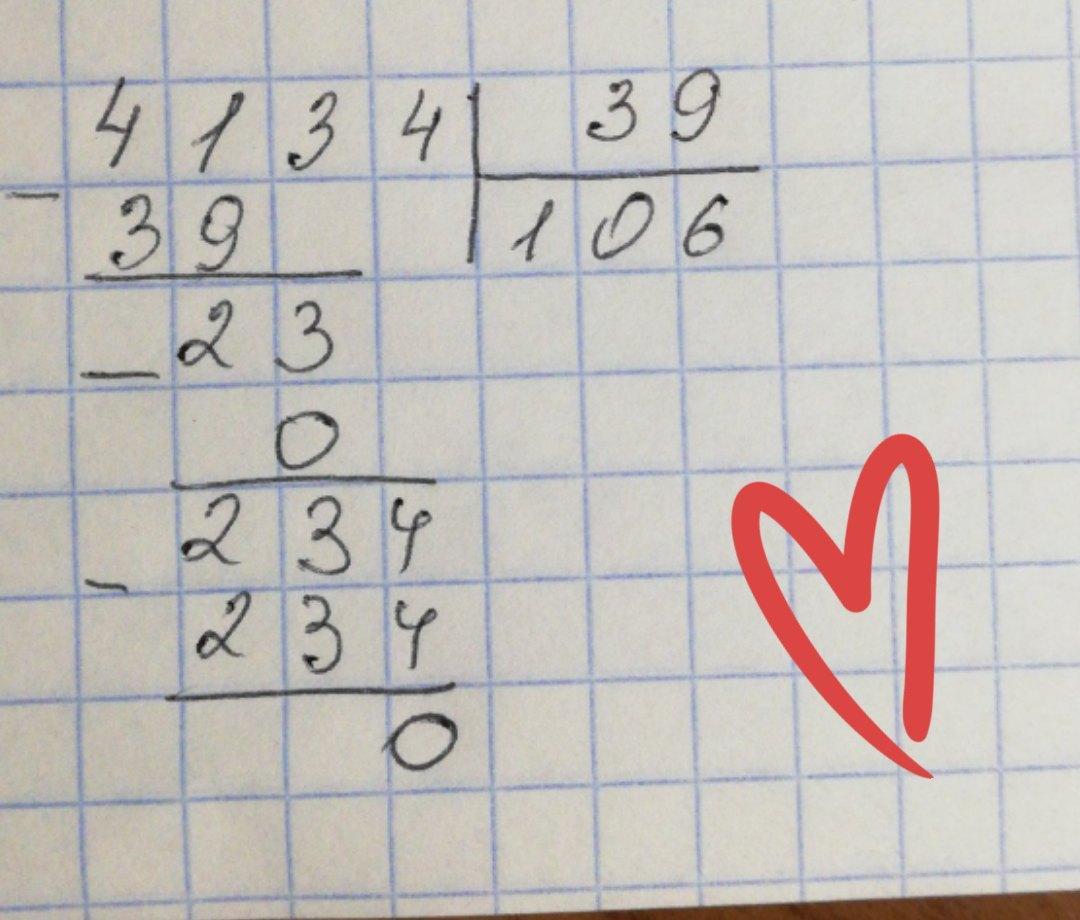 4134 | 39
- 39 | 106
- 23
0
- 234
234
0